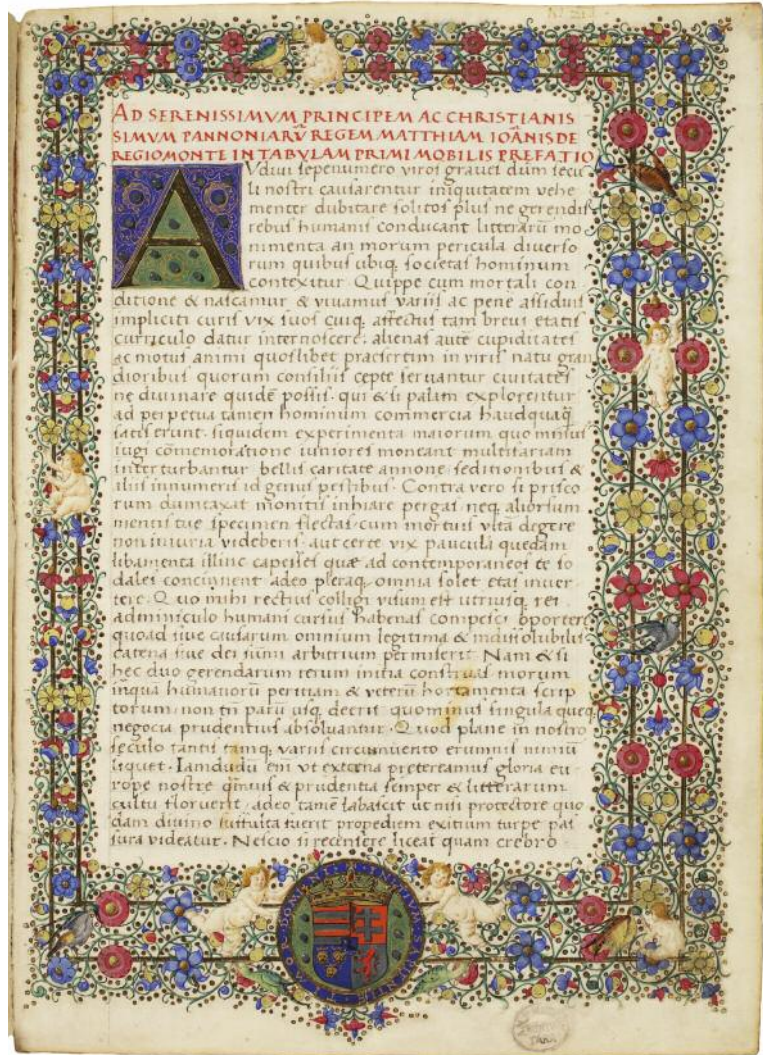 AD SERENISSIMVM PRINCIPEM AC CHRISTIANIS
SIMVM PANNONIARŪ REGEM MATTHIAM IOĀNIS DE
REGIOMONTE IN TABVLAM PRIMI MOBILIS PREFATIO
AVdivi sepenumero viros graves dum secu
li nostri causarentur iniquitatem vehe
menter dubitare solitos plus ne gerendis
rebus humanis conducant litterarū mo
nimenta an morum pericula diverso
rum quibus ubiq; societas hominum
contexitur. Quippe cum mortali con
ditione & nascamur & vivamus variis ac pene assiduis
impliciti curis vix suos cuiq; affectus tam brevi etatis
curriculo datur internoscere. alienas autē cupiditates
ac motus animi quoslibet praesertim in viris natu gran
dioribus quorum consiliis cepte servantur civitates
ne divinare quidē possis. qui & si palam explorentur
ad perpetua tamen hominum commercia haudquaq̄
satis erunt. siquidem experimenta maiorum quo minus
iugi cōmemoratione iuniores moneant multifariam
interturbantur bellis caritate annone seditionibus &
aliis innumeris id genus pestibus. Contra vero si prisco
rum dumtaxat monitis inhiare pergas neq; aliorsum
mentis tue specimen flectas. cum mortuis vitā degere
non iniuria videberis. aut certe vix paucula quedam
libamenta illinc capeses quae ad contemporaneos te so
dales concinnent adeo pleraq; omnia solet etas inver
tere. Quo mihi rectius colligi visum est utriusq; rei
adminiculo humani cursus habenas compesci oportere
quoad sive causarum omnium legitima & indissolubilis
catena sive dei sūmi arbitrium permiserit. Nam & si
hec duo gerendarum rerum initia construas. morum
inquā humaniorū peritiam & veterū hortamenta scrip
torum. non tn̄ parū usq; decrit quominus singula queq;
negocia prudentius absolvantur. Quod plane in nostro
seculo tantis tamq; variis circumvento erumnis nimiū
liquet. Iamdudū em̄ ut externa pretereamus gloria eu
rope nostre q̄mvis & prudentia semper & litterarum
cultu floruerit. adeo tamē labascit ut nisi protectore quo
dam divino suffulta fuerit propediem exitium turpe pas
sura videatur. Nescio si recensere liceat quam crebro